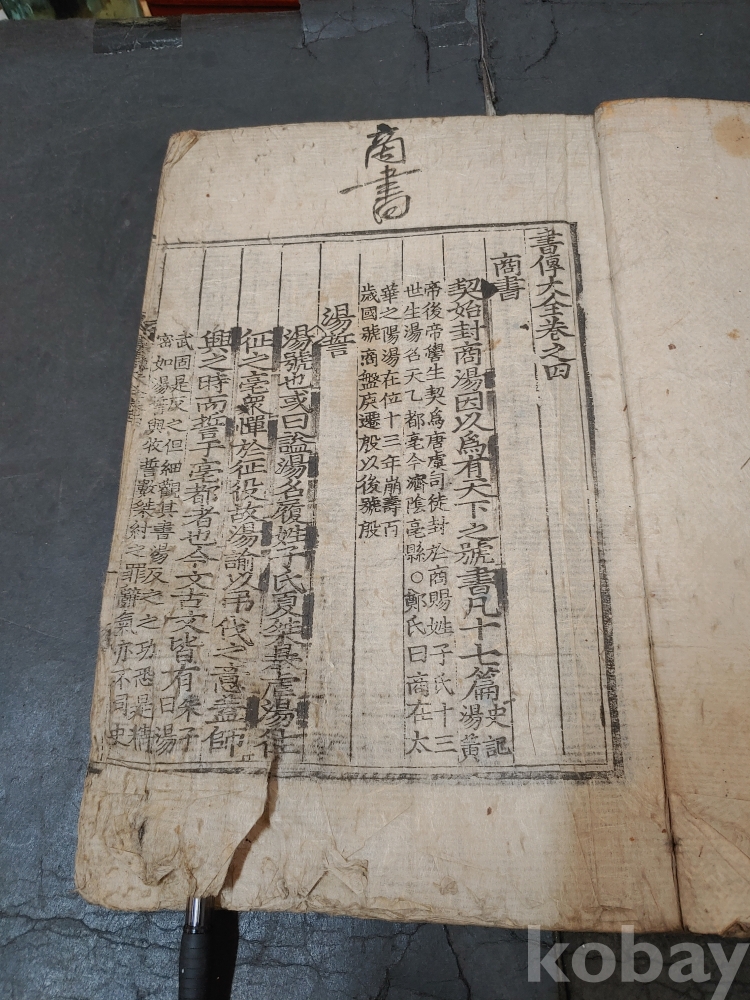 商書
書傳大全卷之四
商書
契始封商湯因以爲有天下之號書凡十七篇史記湯黃
帝後帝嚳生契爲唐虞司徒封於商賜姓子氏十三
世生湯名天乙都亳今濟陰亳縣○鄭氏曰商在太
華之陽湯在位十三年崩壽百
歲國號商盤庚遷殷以後號殷
湯誓
湯號也或曰謚湯名履姓子氏夏桀暴虐湯往
征之亳衆憚於征役故湯諭以弔伐之意蓋師
興之時而誓于亳都者也今文古文皆有朱子曰湯
武固是反之但細觀其書湯反之之功恐是精
密如湯誓與牧誓數桀紂之罪辭氣亦不同史
kobay